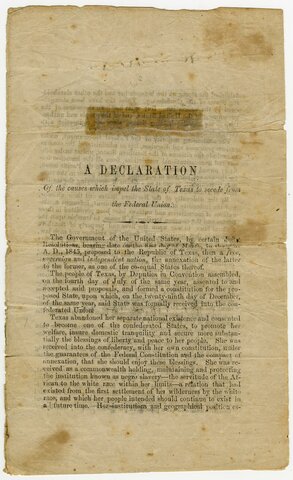 A DECLARATION
Of the causes which impel the State of Texas to secede from
the Federal Union.
The Government of the United States, by certain Joint
Resolutions, bearing date the 1st day of March, in the year
A. D., 1845, proposed to the Republic of Texas, then a free,
sovereign and independent nation, the annexation of the latter
to the former, as one of the co-equal States thereof.
The people of Texas, by Deputies in Convention assembled,
on the fourth day of July of the same year, assented to and
accepted said proposals, and formed a constitution for the pro-
posed State, upon which, on the twenty-ninth day of December,
of the same year, said State was formally received into the con-
federated Union.
Texas abandoned her separate national existence and consented
to become one of the confederated States, to promote her
welfare, insure domestic tranquility and secure more substan-
tially the blessings of liberty and peace to her people. She was
received into the confederacy, with her own constitution, under
the guarantees of the Federal Constitution and the compact of
annexation, that she should enjoy these blessings. She was rec-
eived as a commonwealth holding, maintaining and protecting
the institution known as negro slavery—the servitude of the Af-
rican to the white race within her limits—a relation that had
existed from the first settlement of her wilderness by the white
race, and which her people intended should continue to exist in
all future time. Her institutions and geographical position es-